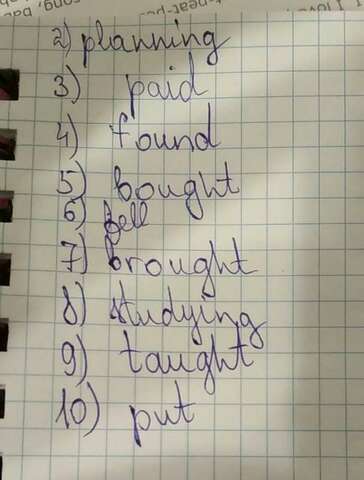 2) planning
3) paid
4) found
5) bought
6) fell
7) brought
8) studying
9) taught
10) put